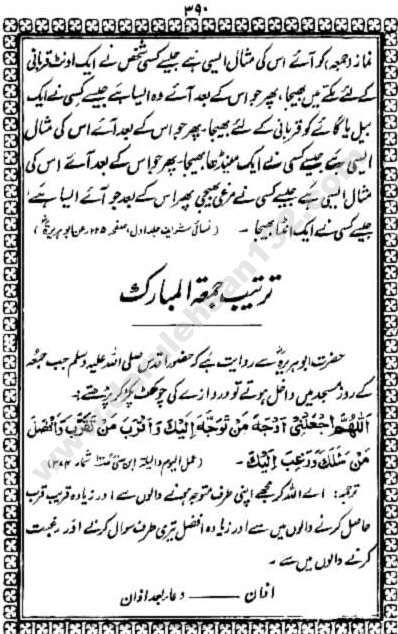 ۳۹۰
نماز (جمعہ) کو آئے اس کی مثال ایسی ہے جیسے کسی شخص نے ایک اونٹ قربانی
کے لئے مکے میں بھیجا، پھر جو اس کے بعد آئے وہ ایسا ہے جیسے کسی نے ایک
بیل یا گائے کو قربانی کے لئے بھیجا۔ پھر جو اس کے بعد آئے اس کی مثال
ایسی ہے جیسے کسی نے ایک مینڈھا بھیجا۔ پھر جو اس کے بعد آئے اس کی
مثال ایسی ہے جیسے کسی نے مرغی بھیجی پھر اس کے بعد جو آئے ایسا ہے،
جیسے کسی نے ایک انڈا بھیجا۔ (نسائی شریف جلد اول، صفحہ ۲۲۵، عن ابو ہریرہؓ)
ترتیب جمعۃ المبارک
حضرت ابو ہریرہؓ سے روایت ہے کہ حضور اقدس صلی اللہ علیہ وسلم جب جمعہ
کے روز مسجد میں داخل ہوتے تو دروازے کی چوکھٹ پکڑ کر پڑھتے:
اَللّٰهُمَّ اجْعَلْنِیْ اَوْجَهَ مَنْ تَوَجَّهَ اِلَیْكَ وَاَقْرَبَ مَنْ تَقَرَّبَ وَاَفْضَلَ
مَنْ سَئَلَكَ وَرَغِبَ اِلَیْكَ۔ (عمل الیوم واللیلۃ ابن سنی شمار ۳۷۴)
ترجمہ: اے اللہ کر مجھے اپنی طرف متوجہ ہونے والوں سے اور زیادہ قریب قرب
حاصل کرنے والوں میں سے اور زیادہ افضل تیری طرف سوال کرنے اور رغبت
کرنے والوں میں سے۔
اذان ——— دعا بعد اذان
www.darulehsan132.com